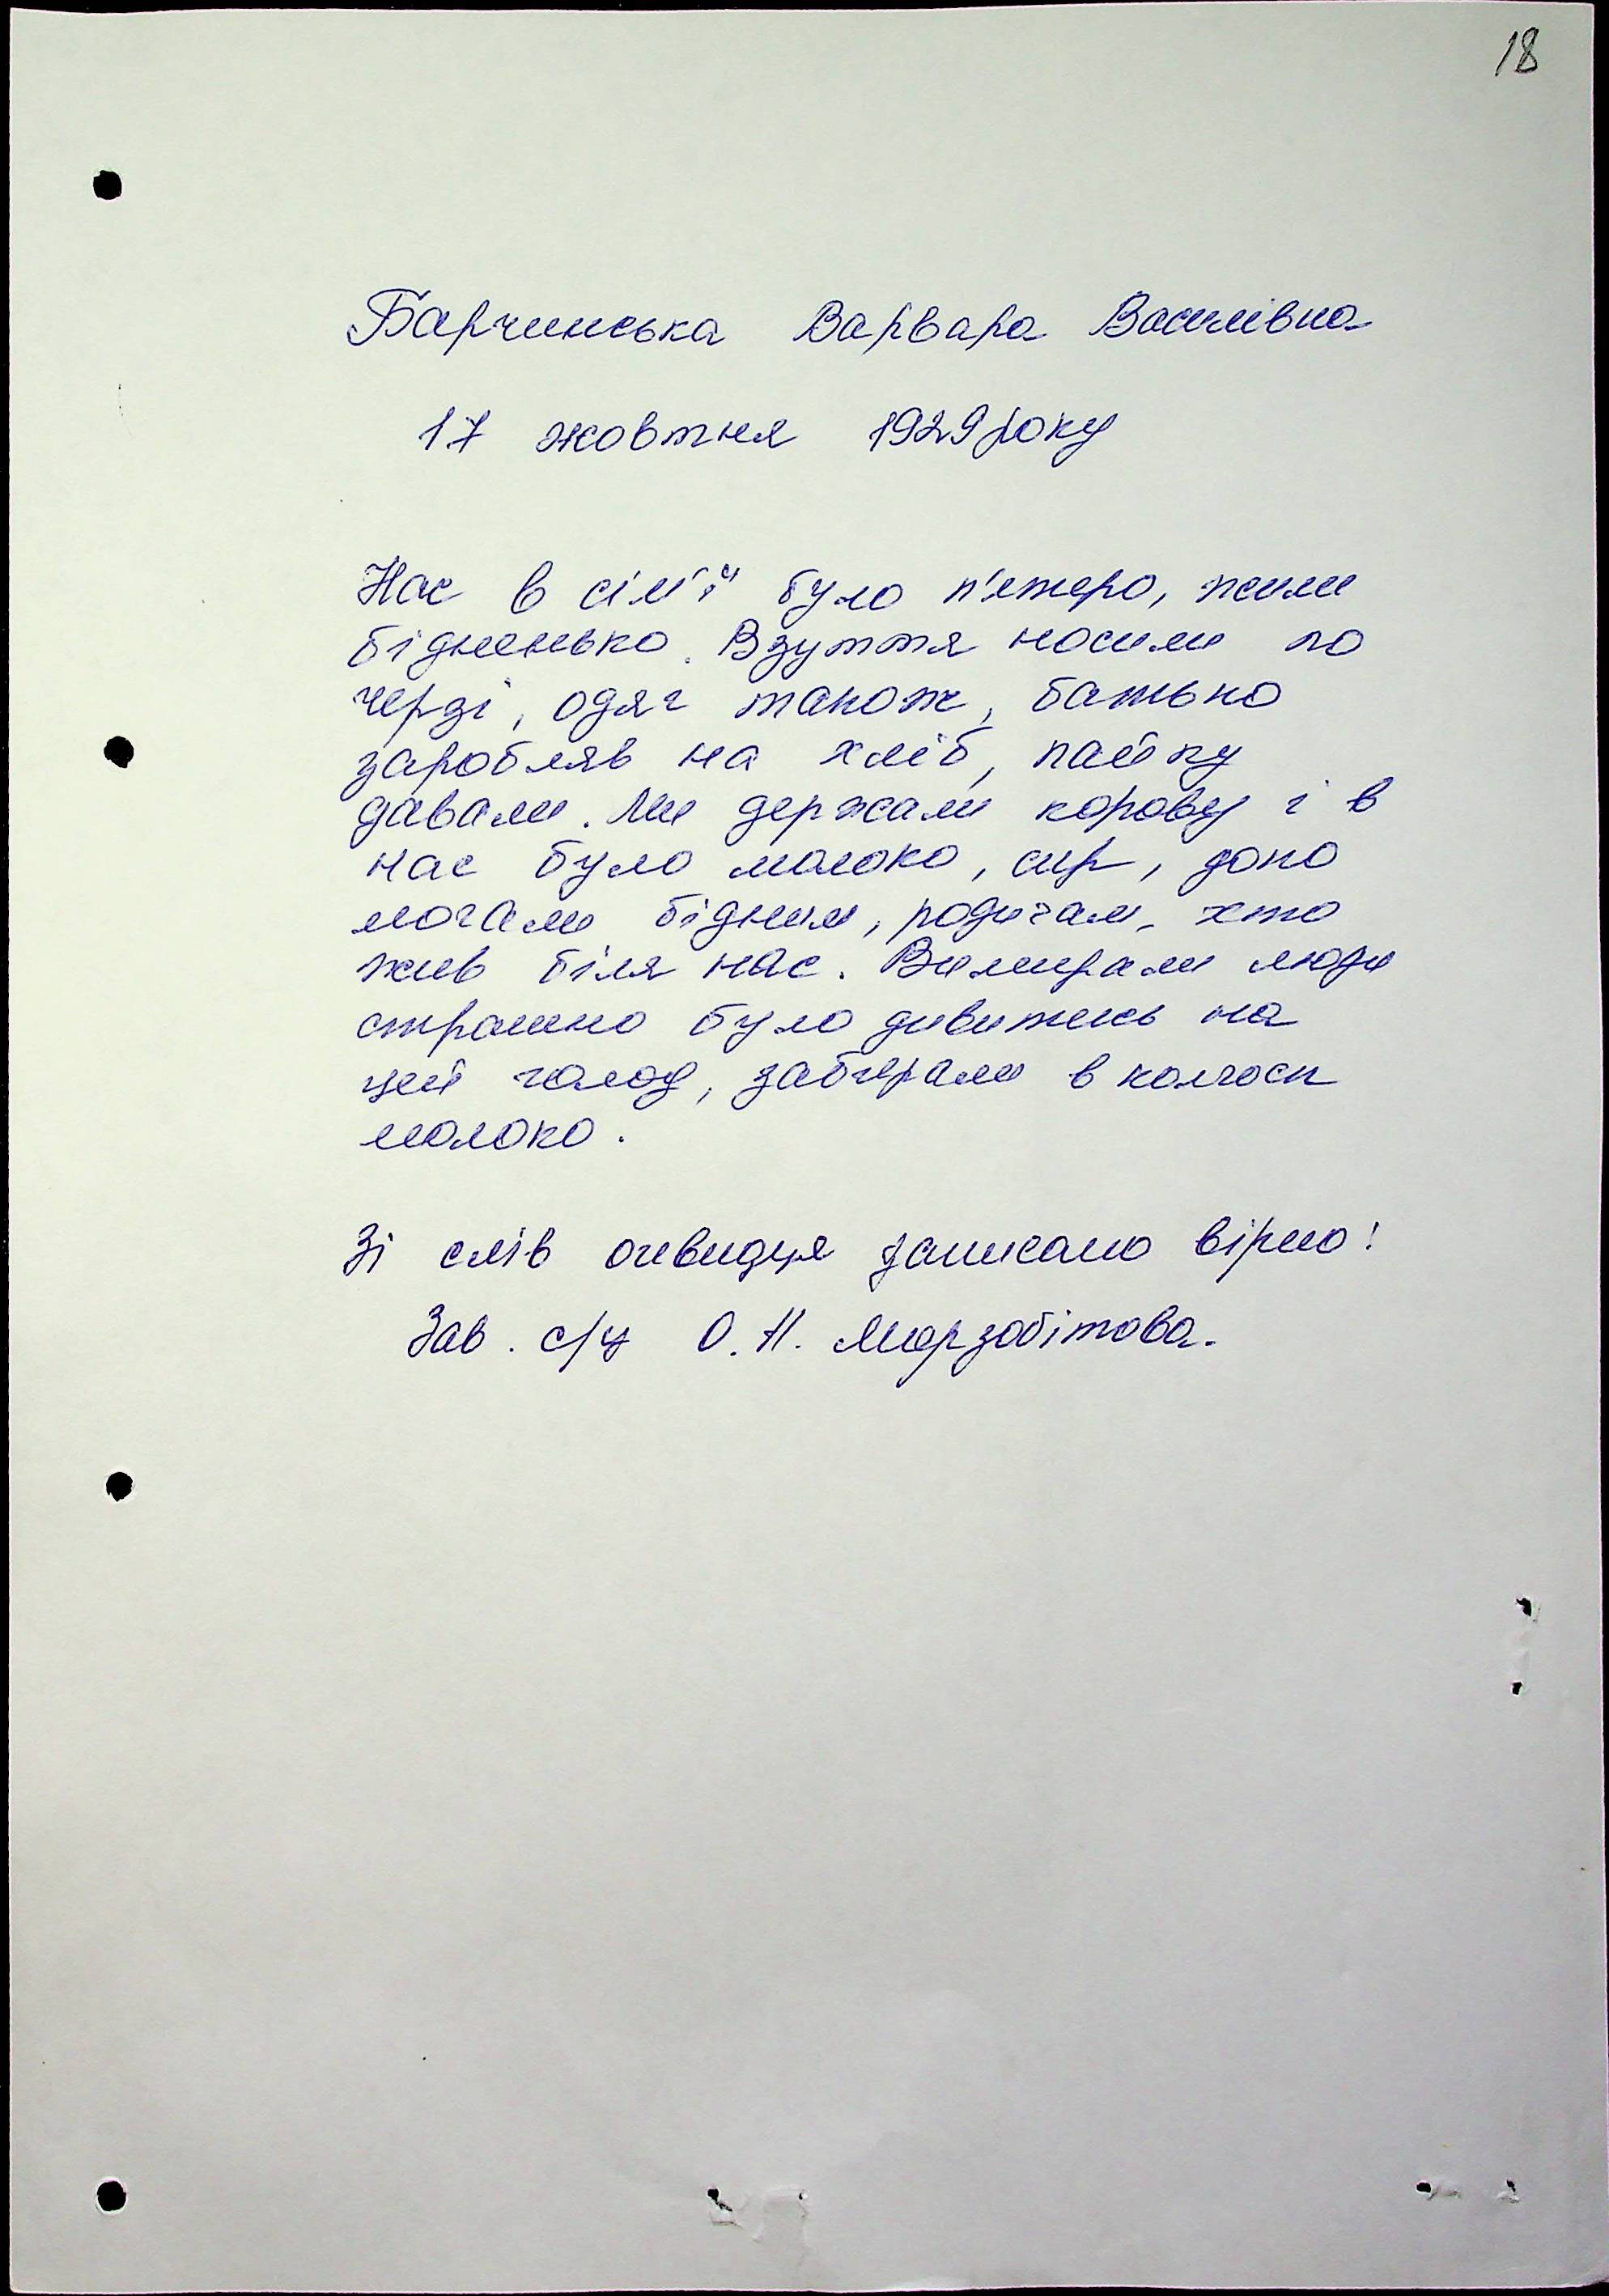 18
Барчинська Варвара Василівна
17 жовтня 1929 року
Нас в сім'ї було п'ятеро, жили
бідненько. Взуття носили по
черзі, одяг також, батько
заробляв на хліб, пайку
давали. Ми держали корову і в
нас було молоко, сир, допо
могали бідним, родичам, хто
жив біля нас. Вимирали люди
страшно було дивитись на
цей голод, забирали в колгосп
молоко.
Зі слів очевидця записано вірно!
Зав. с/ц О.Н. Мюрзабітова.